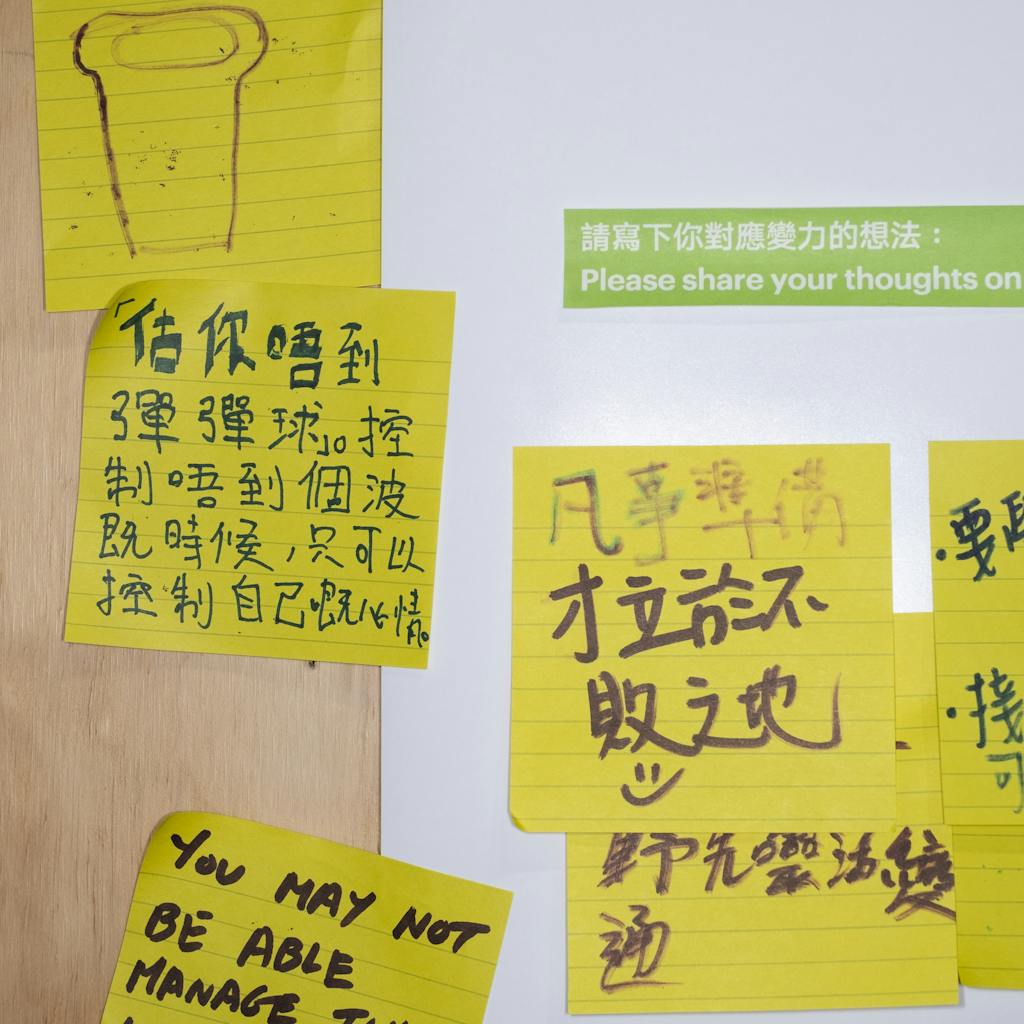 請寫下你對應變力的想法：
Please share your thoughts on
「估你唔到
彈彈球」。控
制唔到個波
既時候，只可以
控制自己嘅心情。
凡事準備
才立於不
敗之地
野先識變
通
要
接
可
YOU MAY NOT
BE ABLE
MANAGE